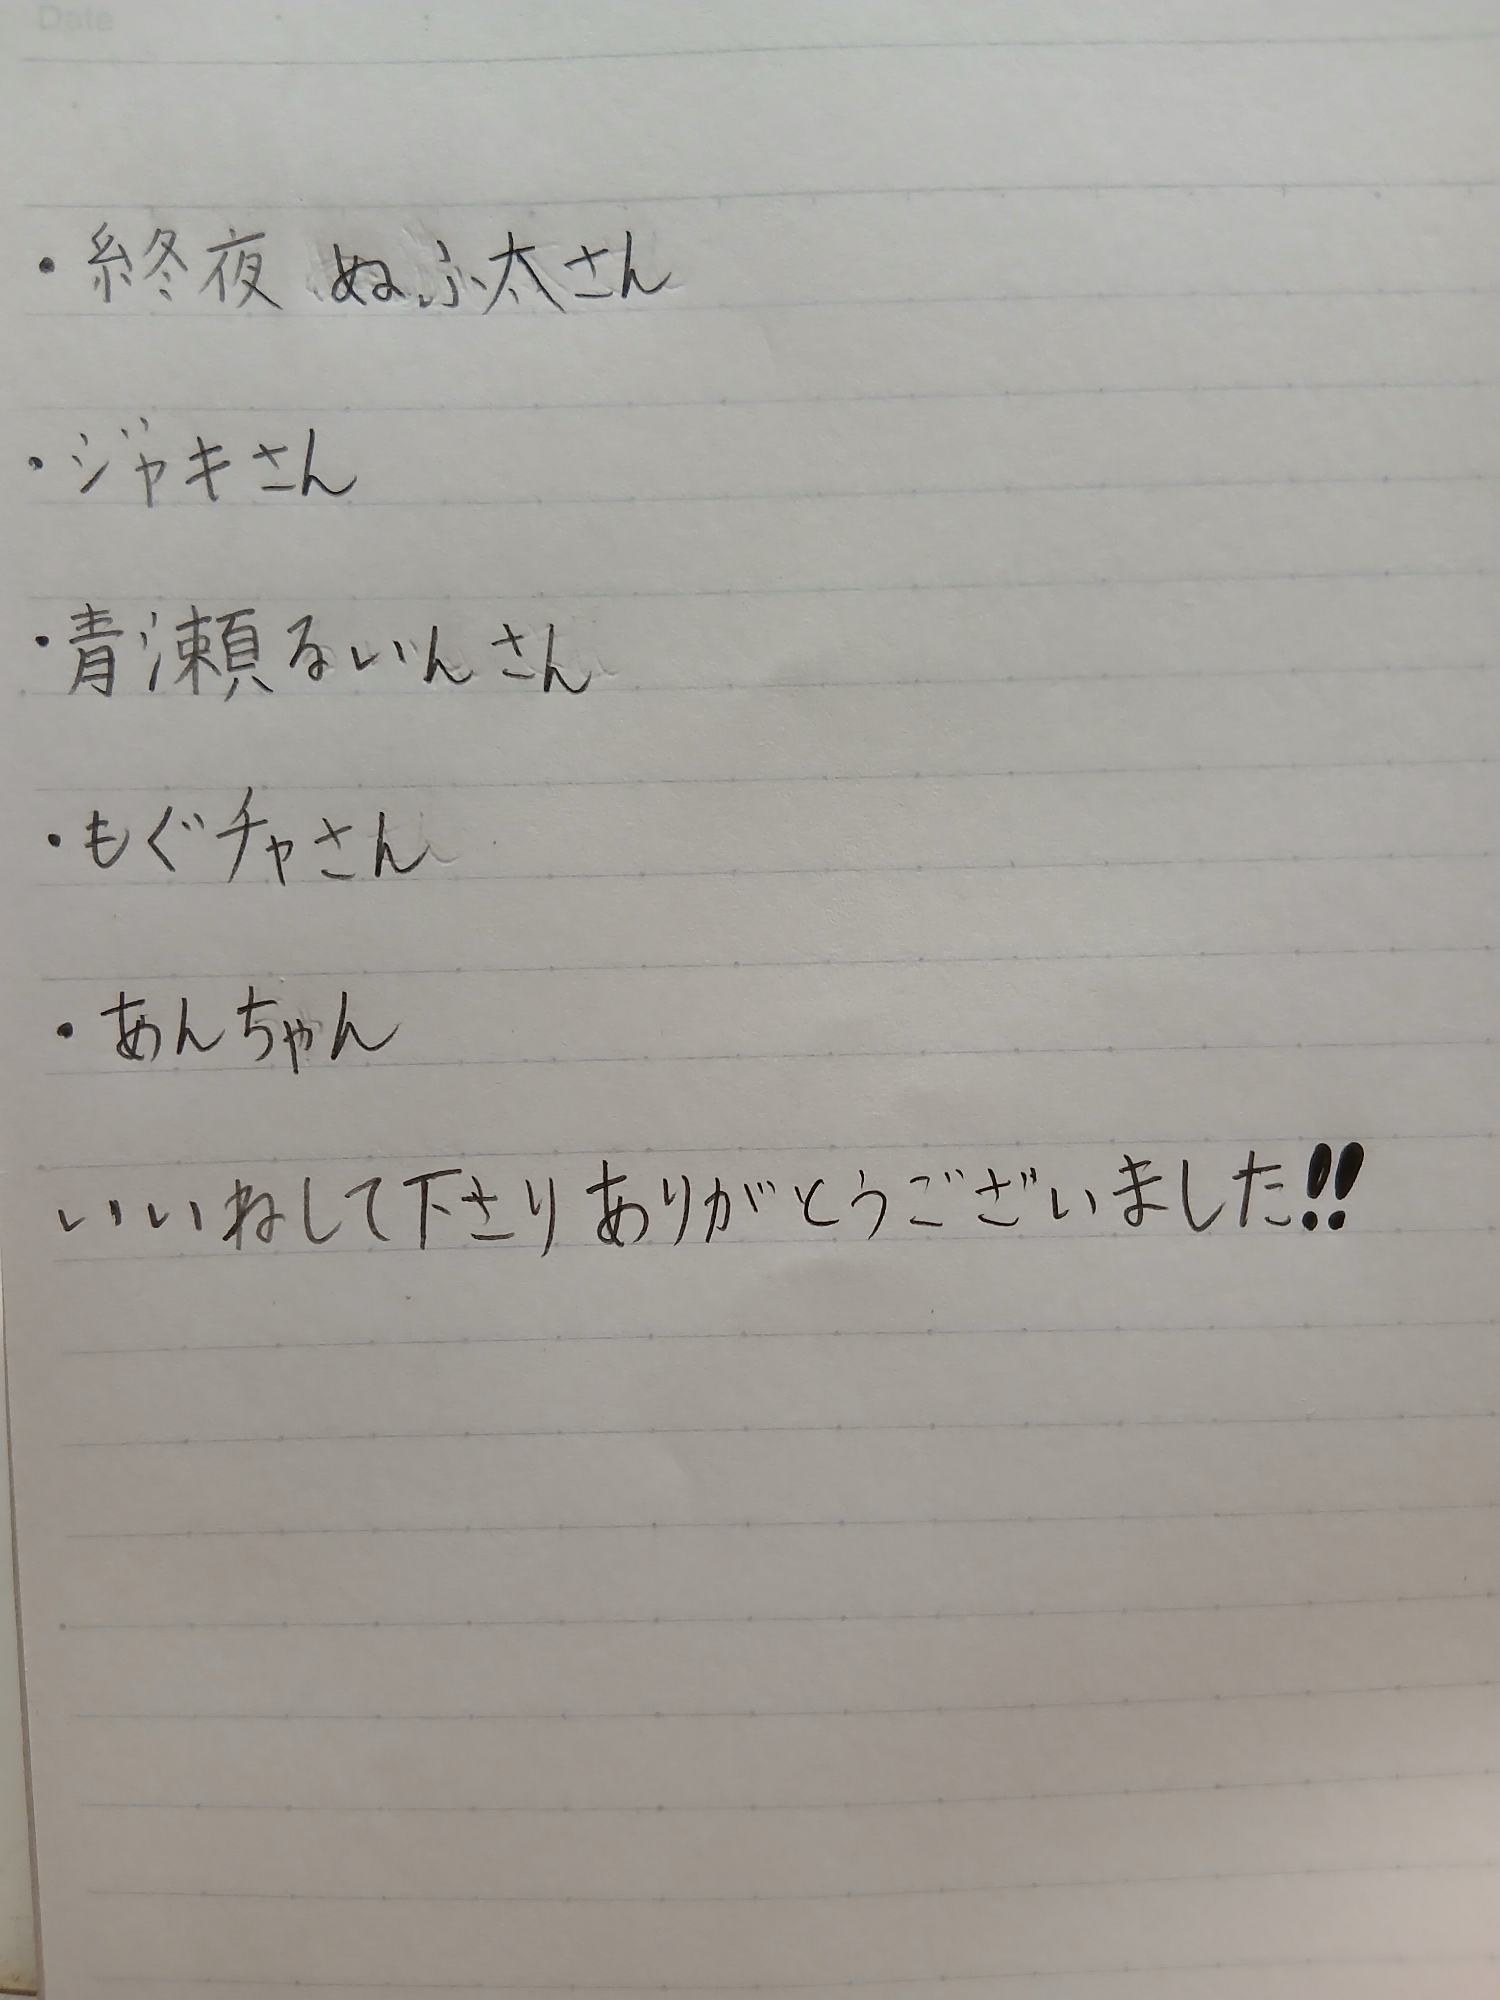 Date
・終夜 ぬふ太さん
・ジャキさん
・青瀬るいんさん
・もぐチャさん
・あんちゃん
いいねして下さりありがとうございました!!